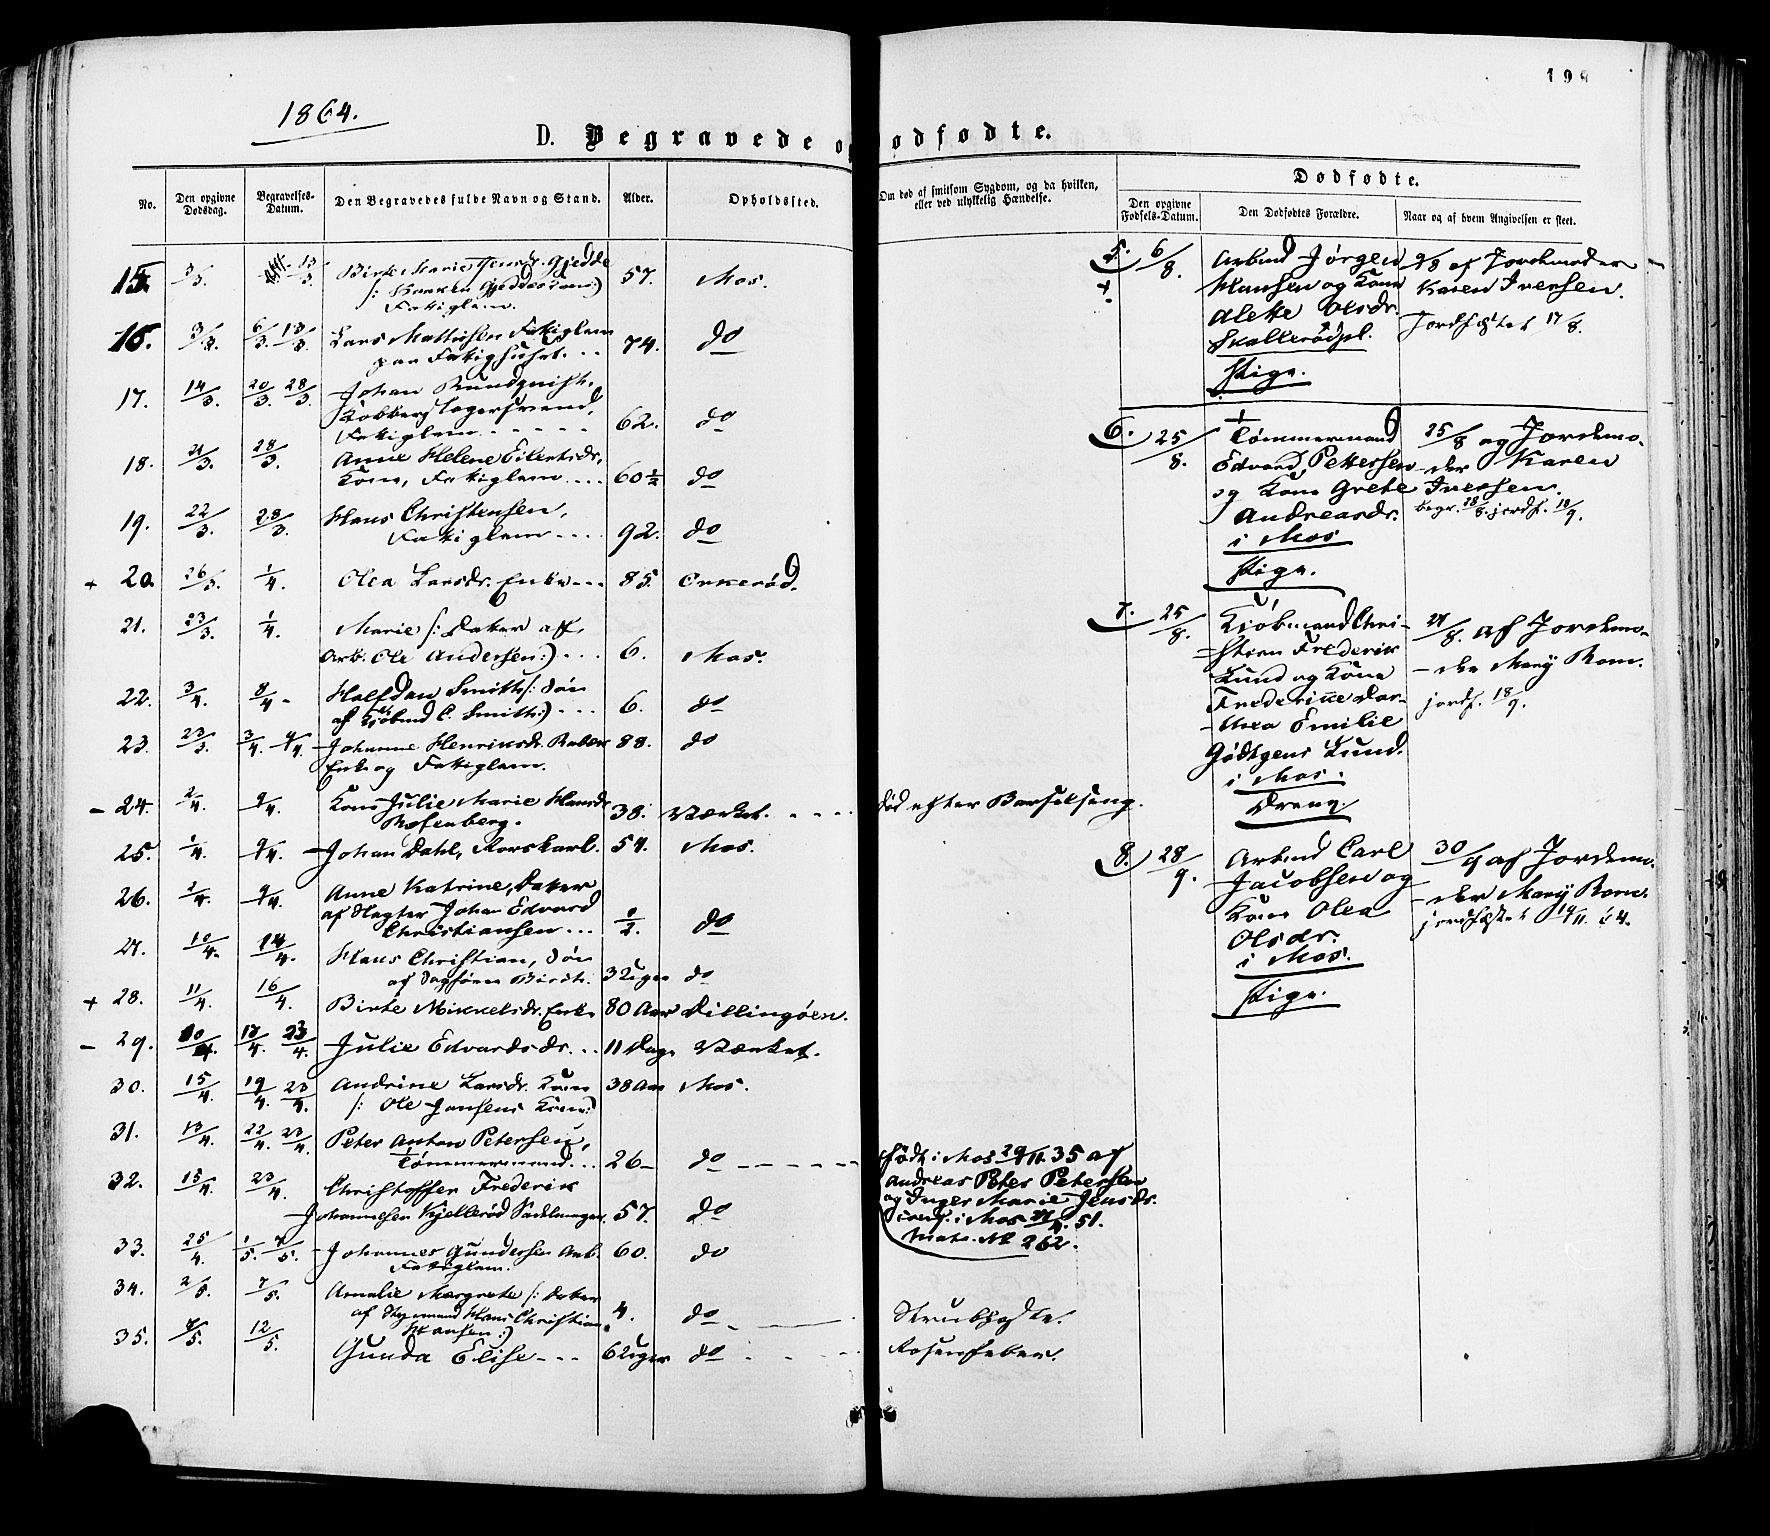 1864.
D. Begravede og Dødfødte.
No.
Den opgivne Dødsdag.
Begravelses-Datum.
Den Begravedes fulde Navn og Stand.
Alder.
Opholdssted.
Om død af smitsom Sygdom, og da hvilken, eller ved ulykkelig Hændelse.
Dødfødte.
Den opgivne Fødsels-Datum.
Den Dødfødtes Forældre.
Naar og af hvem Angivelsen er skeet.
15. 3/3. 13/3 Birte Marie Gjedde 57. Mos.
Fattiglem.
16. 3/3. 6/3. 13/3 Lars Mathisen Fattiglem
paa Fattighuset. 74. do
17. 14/3. 20/3. 28/3. Johan Rundqvist,
Kobberslagersvend,
Fattiglem 62. do
18. 21/3. 28/3. Anne Helene Eilertsdr.
Kone, Fattiglem 60 1/2 do
19. 22/3. 28/3. Hans Christensen,
Fattiglem 92. do
+ 20. 26/3. 1/4. Olea Larsdr. Enke 85. Orkerød.
21. 23/3. 1/4. Marie /: Datter aff.
Arb. Ole Andersen:) 6. Mos.
22. 3/4. 8/4 Halfdan Smith /: Søn
af Kjøbmd C. Smith:) 6. do
23. 23/3. 3/4. 9/4. Johanne Henriksdr. 88. do
Enke og Fattiglem.
- 24. 2/4. 9/4. Kone Julie Marie Hansdr
Rosenberg. 38. Værket. død efter Barselseng.
25. 1/4. 9/4. Johan Dahl, Morskarl. 54. Mos.
26. 2/4. 9/4. Anne Katrine, Datter
af Slagter Johan Edvard
Christiansen 1/2. do
27. 10/4. 14/4. Hans Christian, Søn
af Birch. 3 Uger do
+ 28. 11/4. 16/4. Birte Mikkelsdr. Enke 80 Aar Dillingøen.
- 29. 10/4. 17/4. 23/4. Julie Edvardsdr. 11 Dage Værket.
30. 15/4. 19/4. 23/4. Andrine Larsdr. Kone 38 Aar Mos.
/: Ole Jensens Kone:)
31. 13/4. 22/4. 23/4. Peter Anton Petersen,
Tømmermand 26 do
født i Mos 29/11. 35 af
Andreas Peter Petersen
og Inger Marie Jensdr.
i Mos 51.
No 262.
32. 15/4. 23/4. Christoffer Frederik
Johannesen Kjellerød Sadelmager. 57. do
33. 25/4. 1/5. 7/5. Johannes Gundersen Arb. 60. do
Fattiglem.
34. 2/5. 7/5. Amalie Margrete /: Datter
af Styrmand Hans Christian
Hansen:) 4. do Strubehoste.
35. 4/5. 12/5. Gunda Elise 6 Uger do Rosenfeber.
5. 6/8. Arbmd Jørgen
Hansen og Kone
Alette Olsdr.
Skallerødpl.
Pige.
9/8 af Jordemoder
Karen Iversen.
Jordfæstet 17/8.
6. 25/8. Tømmermand
Edvard Pettersen
og Kone Grete
Andreasdr.
i Mos
Pige.
25/8 ag Jordemo-
der Karen
Iversen.
begr. 28/8. jordf. 18/9.
7. 25/8. Kjøbmand Chri-
stian Frederik
Lund og Kone
Frederikke Dor-
thea Emilie
Gødtgens Lund.
i Mos.
Dreng
27/8. af Jordemo-
der Mary Rom.
jordf. 18/9.
8. 28/9. Arbmd Carl
Jacobsen og
Kone Olea
Olsdr.
i Mos.
Pige.
30/9 af Jordemo-
der Mary Rom.
jordfæstet 19/11. 64.